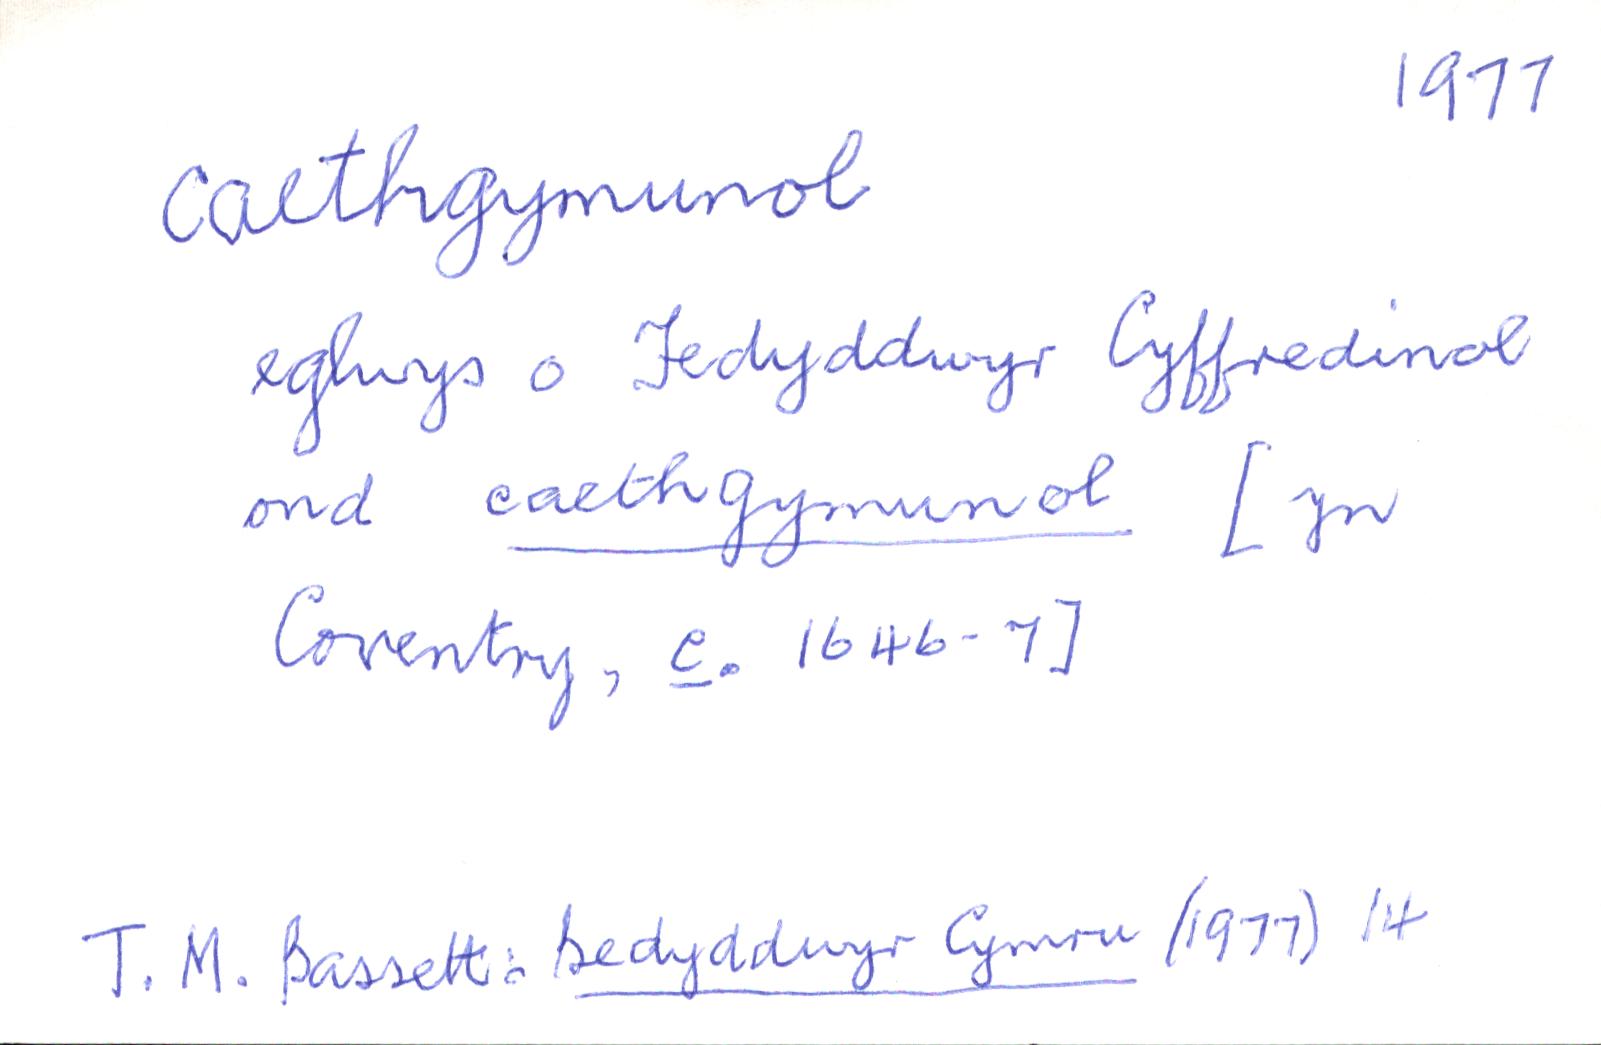 1977
caethgymunol
eglwys o Fedyddwyr Cyffredinol
ond caethgymunol [yn
Coventry, c. 1646-7]
T. M. Bassett: Bedyddwyr Cymru (1977) 14